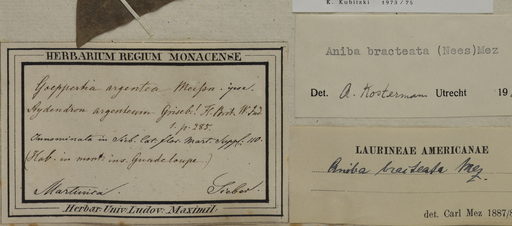 K. Kubitzki 1973/75
HERBARIUM REGIUM MONACENSE
Goeppertia argentea Meissn.
Aydendron argenteum Griseb! Fl. Brit. W. Ind.
1. p. 285.
in Sieb. Cat. flor. Mart. Suppl. 110.
(Hab. in mont. ins. Guadeloupe.)
Martinica. Sieber.
Herbar. Univ. Ludov. Maximil.
Aniba bracteata (Nees) Mez
Det. A. Kostermans Utrecht 19
LAURINEAE AMERICANAE
Aniba bracteata Mez
det. Carl Mez 1887/8